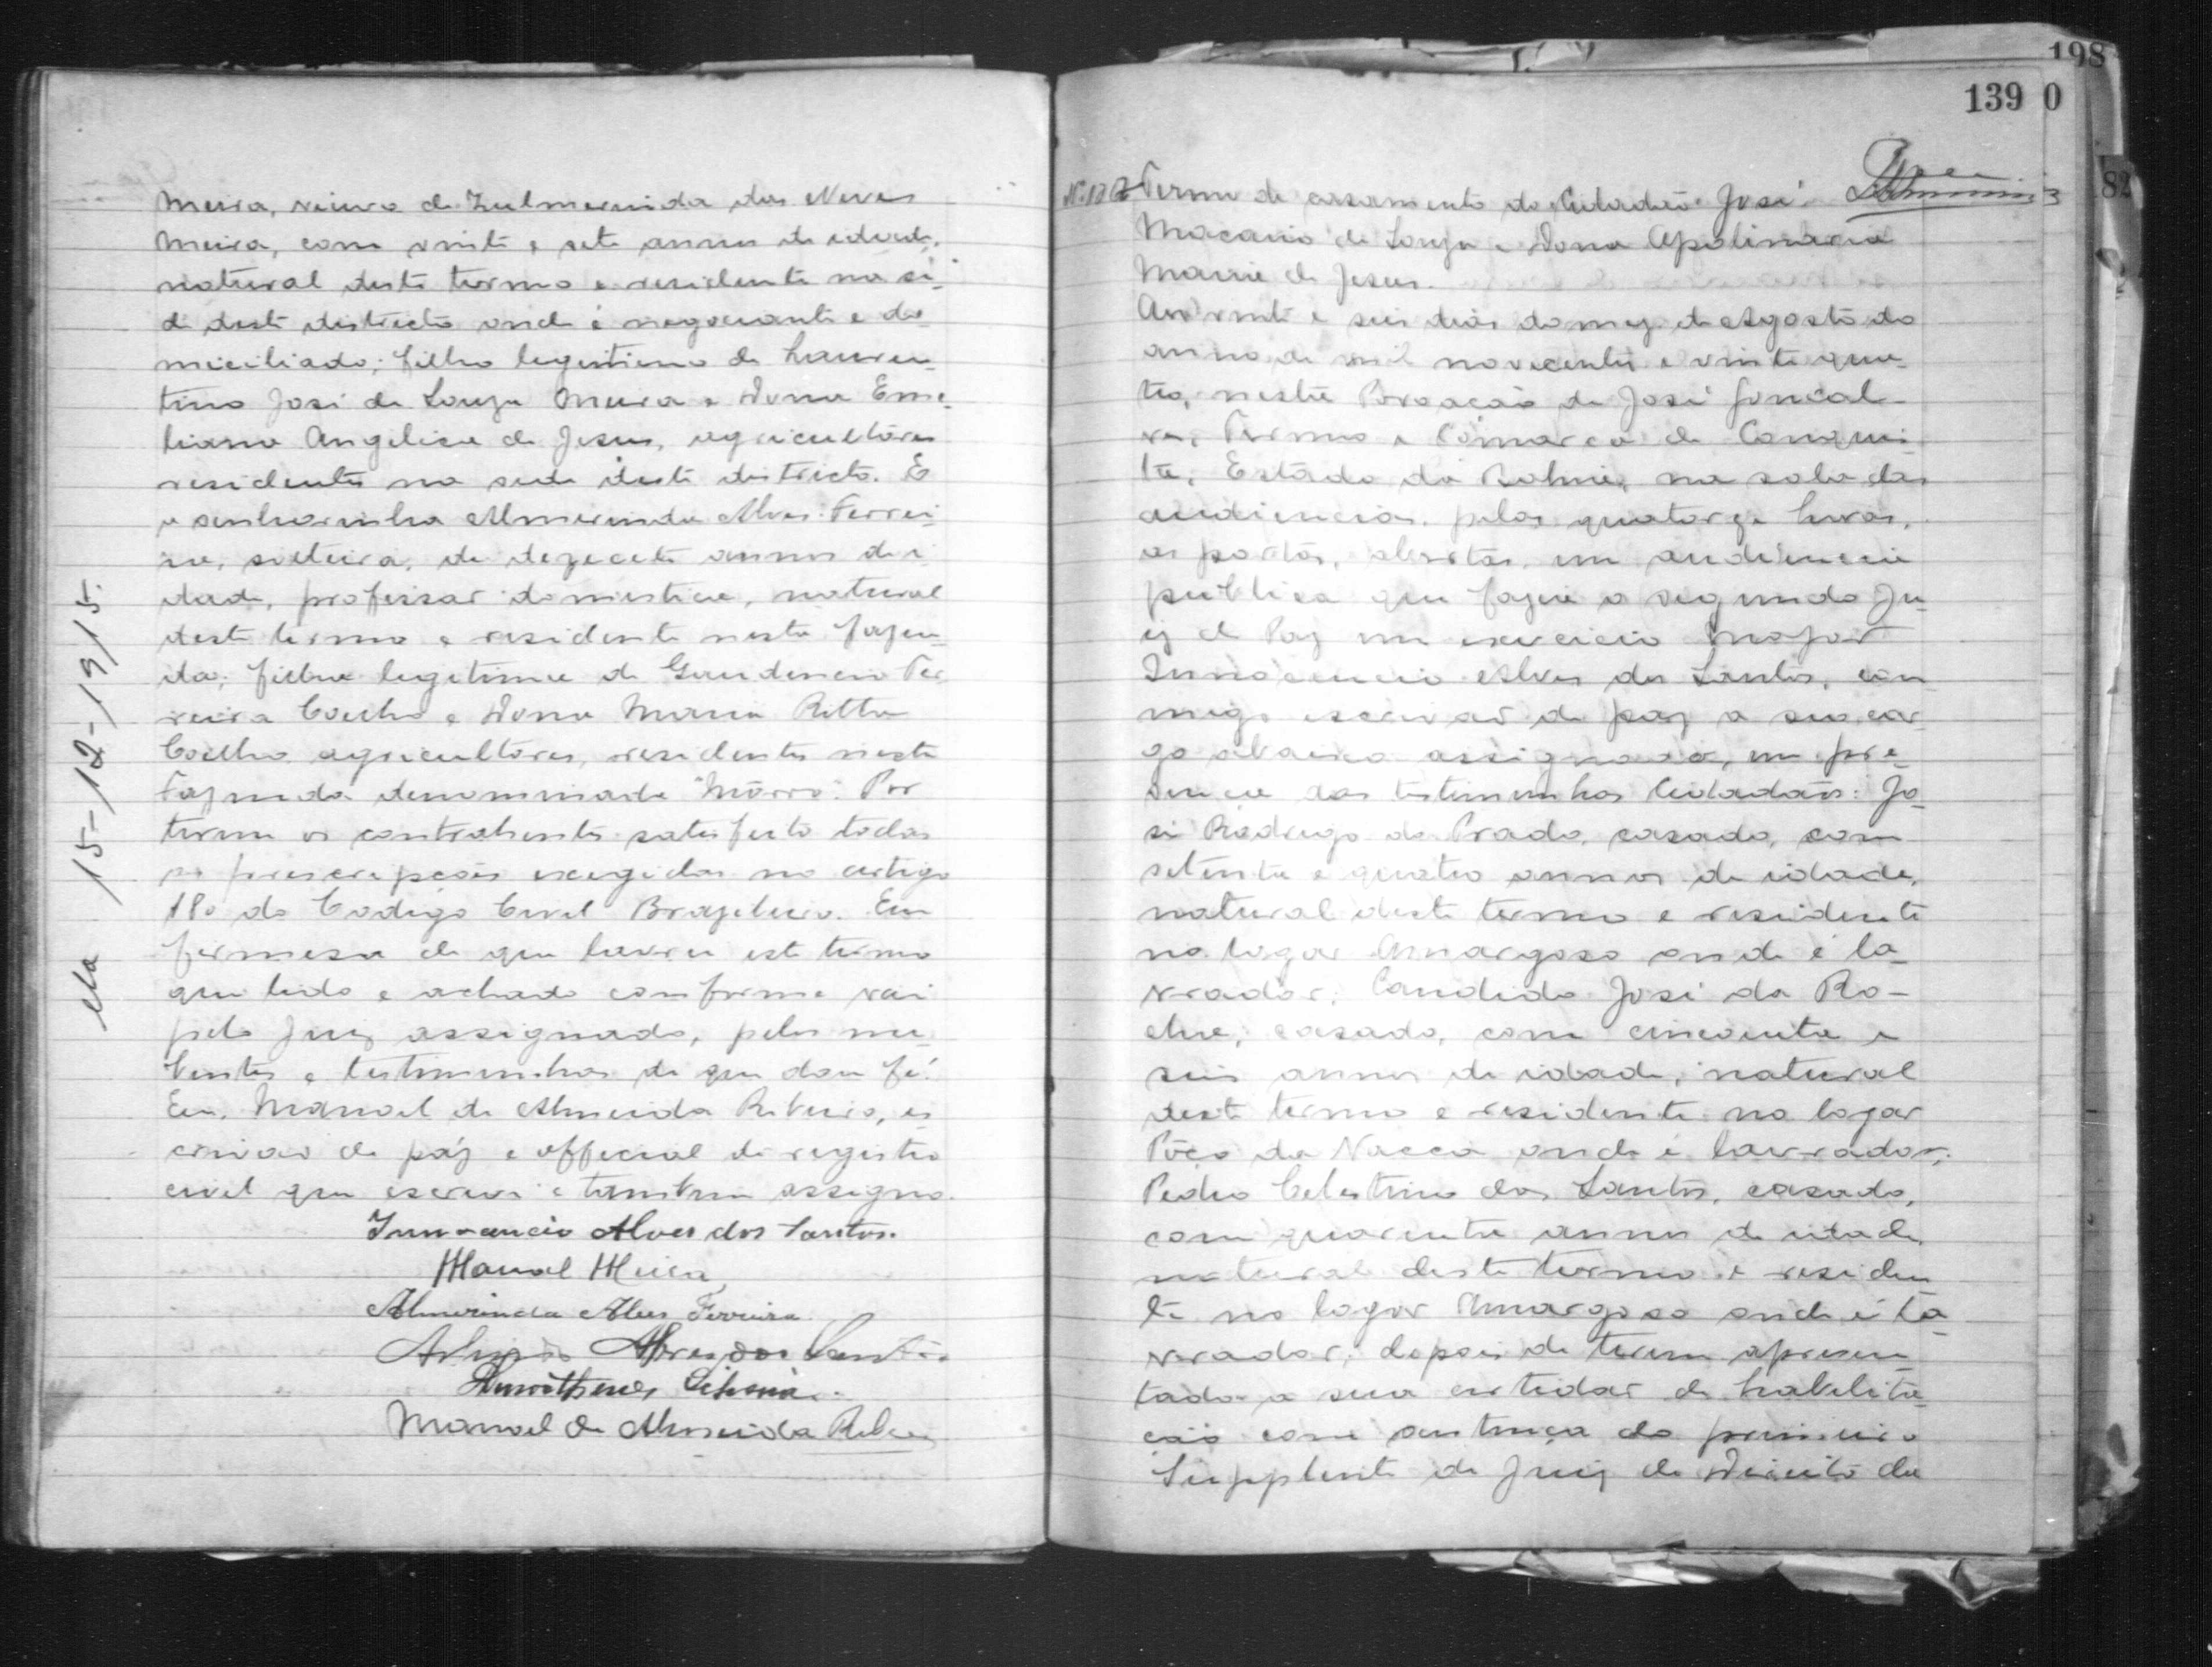 Meira, viuvo de Zulmerinda das Neves
Meira, com vinte e sete annos de idade,
natural deste termo e residente na sé-
de deste districto onde é negociante e do-
miciliado; filho legitimo de Lauren-
tino José de Souza Meira e Dona Eme-
liana Angelica de Jesus, agricultôres
residentes na sede deste districto. E
a senhorinha Almerinda Alves Ferrei-
ra, solteira, de dezecete annos de i-
dade, professar domestica, natural
deste termo e residente nesta fazen-
da; filha legitima de Gaudencio Fer
reira Coelho e Dona Maria Ritta
Coelho agricultôres, residentes nesta
Fazenda denominada "Môrro". Por
terem os contrahentes satisfeito todas
as prescripções exegidas no artigo
180 do Codigo Civel Brazileiro. Em
fermesa de que lavrei este termo
que lido e achado conforme vai
pelo Juiz assignado, pelos nu-
bentes e testimunhas de que dou fé.
Eu, Manoel de Almeida Ribeiro, es
crivão de páz e official de registro
civel que escrevi e tambem assigno.
Innocencio Alves dos Santos.
Manoel Meira
Almerinda Alves Ferreira
Alves dos Santos
Manoel de Almeida Ribeiro
ela 15-12-1915.
198
139 0
82
Termo de casamento do Cidadão José
Macario de Souza e Dona Apolinaria
Maria de Jesus.
Aos vinte e seis dias do mez de Agosto do
anno de mil novecentos e vinte qua-
tro, nesta Povoação de José Goncal-
ves, Termo e Cómarca de Conquis-
ta, Estado da Bahia, na sala das
audiencias, pelas quatorze horas,
as portas, abertas, em audiencia
publica que fazia o segundo Ju-
iz de Paz em exercicio Major
Innocencio Alves dos Santos, com
migo escrivão de paz a seu car
go abaixo assignado, em pre-
sença das testimunhas Cidadãos: Jo-
sé Rodrigo do Prado, casado, com
setenta e quatro annos de idade,
natural deste termo e residente
no logar Amargoso onde é la-
vrador; Candido José da Ro-
cha, casado, com cincoenta e
seis annos de idade, natural
deste termo e residente no logar
Pôço da Vacca onde é lavrador;
Pedro Celestino dos Santos, casado,
com quarenta annos de idade
natural deste termo e residen
te no logar Amargoso onde é la-
vrador, depois de terem apresen
tado a sua certidão de habilita-
ção com sentença do primeiro
Supplente de Juiz de Direito da